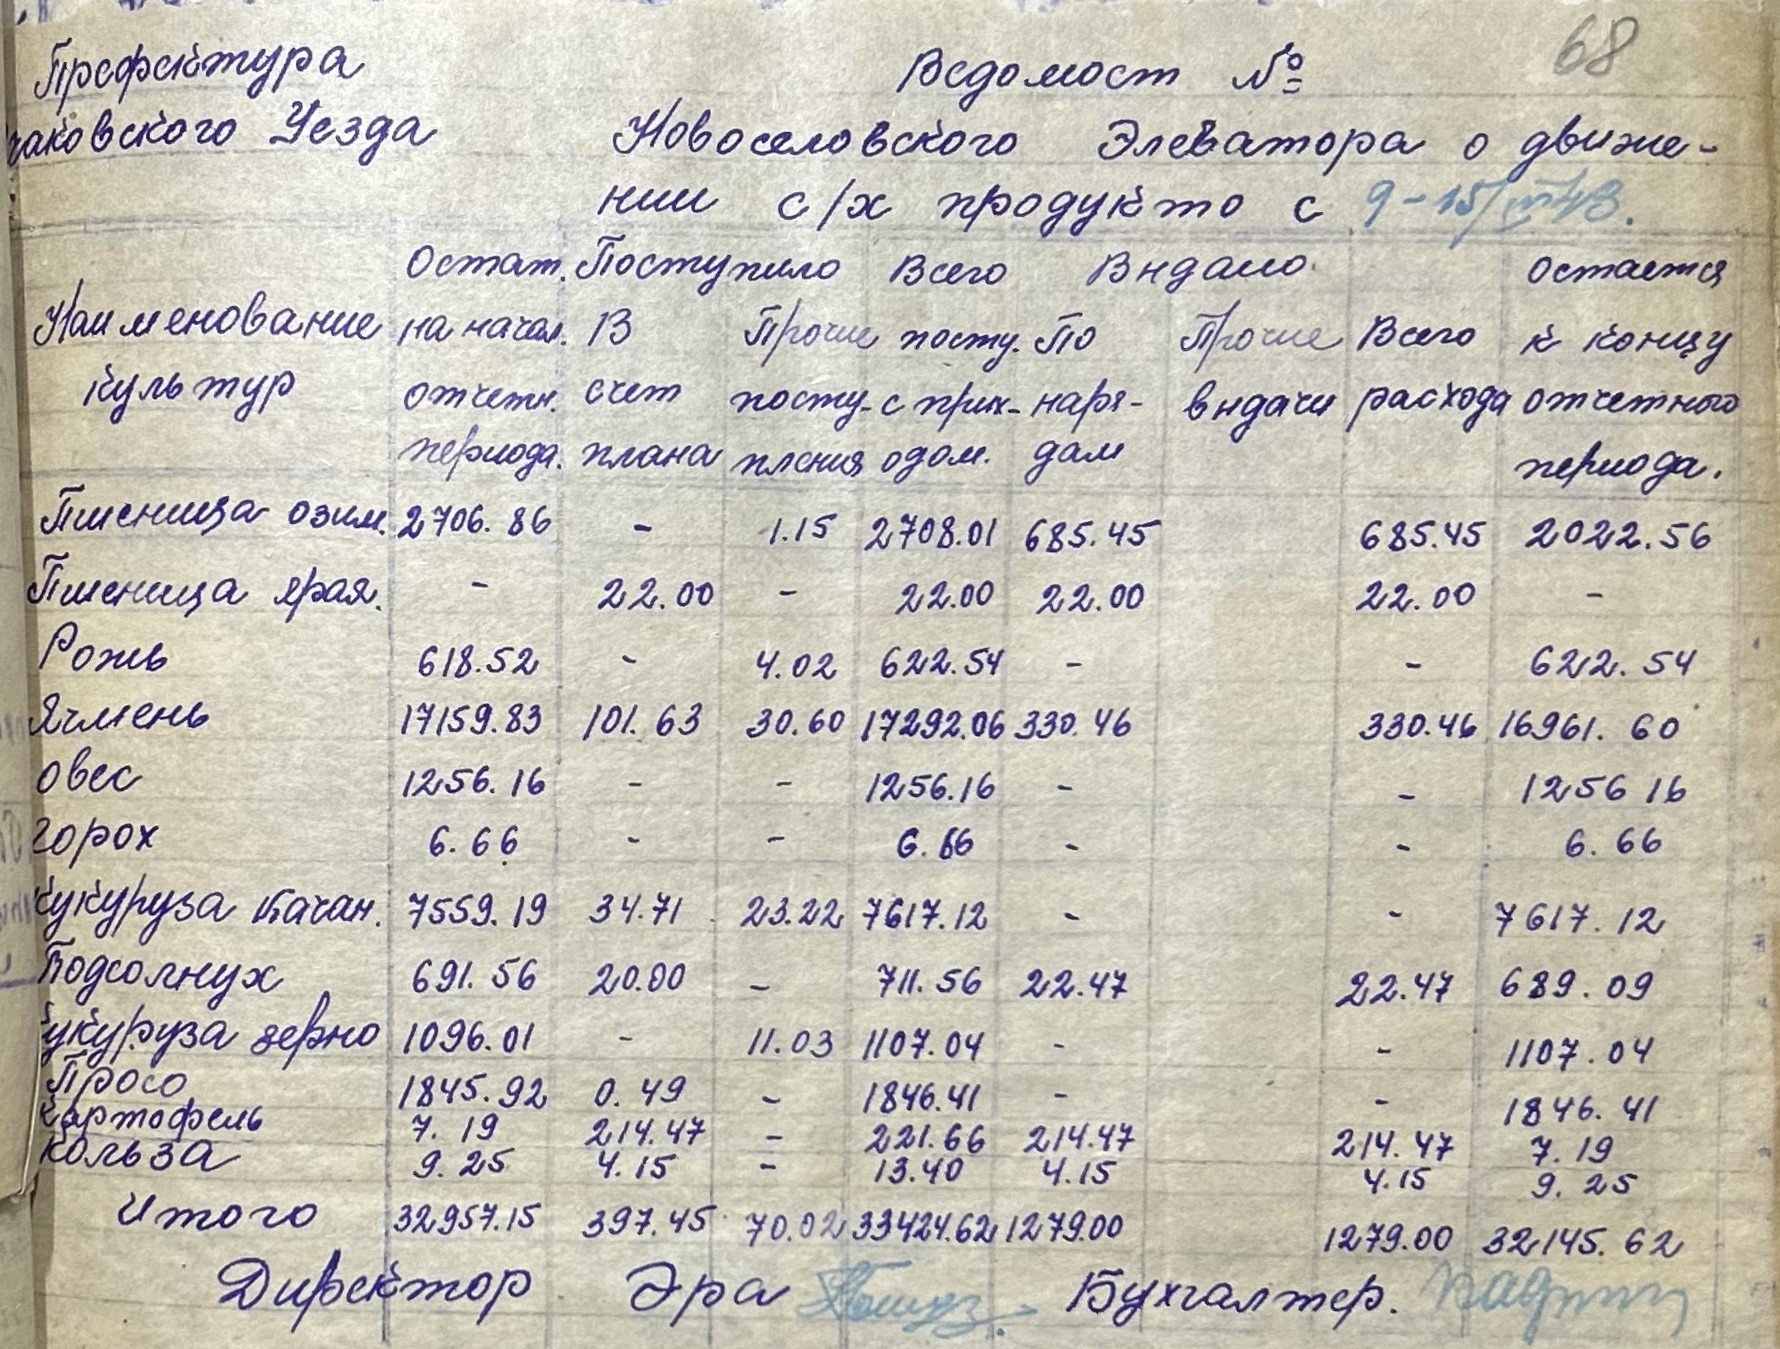 68
Префектура
чаковского Уезда
Ведомост №
Новоселовского Элеватора о движе-
нии с/х продукто с 9-15/III 43.
Наименование культур | Остат. на начал. отчетн. периода. | Поступило В счет плана | Прочие поступления | Всего посту. с прих-одом. | Выдано. По наря-дам | Прочие выдачи | Всего расхода | остается к концу отчетного периода.
Пшеница озим. 2706.86 - 1.15 2708.01 685.45 685.45 2022.56
Пшеница ярая. - 22.00 - 22.00 22.00 22.00 -
Рожь 618.52 - 4.02 622.54 - - 622.54
Ячмень 17159.83 101.63 30.60 17292.06 330.46 330.46 16961.60
овес 1256.16 - - 1256.16 - - 1256 16
горох 6.66 - - 6.66 - - 6.66
кукуруза качан. 7559.19 34.71 23.22 7617.12 - - 7617.12
Подсолнух 691.56 20.00 - 711.56 22.47 22.47 689.09
кукуруза зерно 1096.01 - 11.03 1107.04 - - 1107.04
Просо 1845.92 0.49 - 1846.41 - - 1846.41
картофель 7.19 214.47 - 221.66 214.47 214.47 7.19
кольза 9.25 4.15 - 13.40 4.15 4.15 9.25
Итого 32957.15 397.45 70.02 33424.62 1279.00 1279.00 32145.62
Директор Эра Бухгалтер.